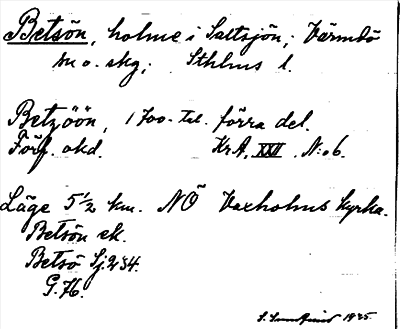 Betsön, holme i Saltsjön; Värmdö
sn o. skg; Sthlms l.
Betzöön, 1700-tal. förra del.
Förf. okd. KrA, XXVI N:o 6.
Läge 5 1/2 km. NÖ Vaxholms kyrka.
Betsön ek.
Betsö Sj. 234.
G. 76.
1935